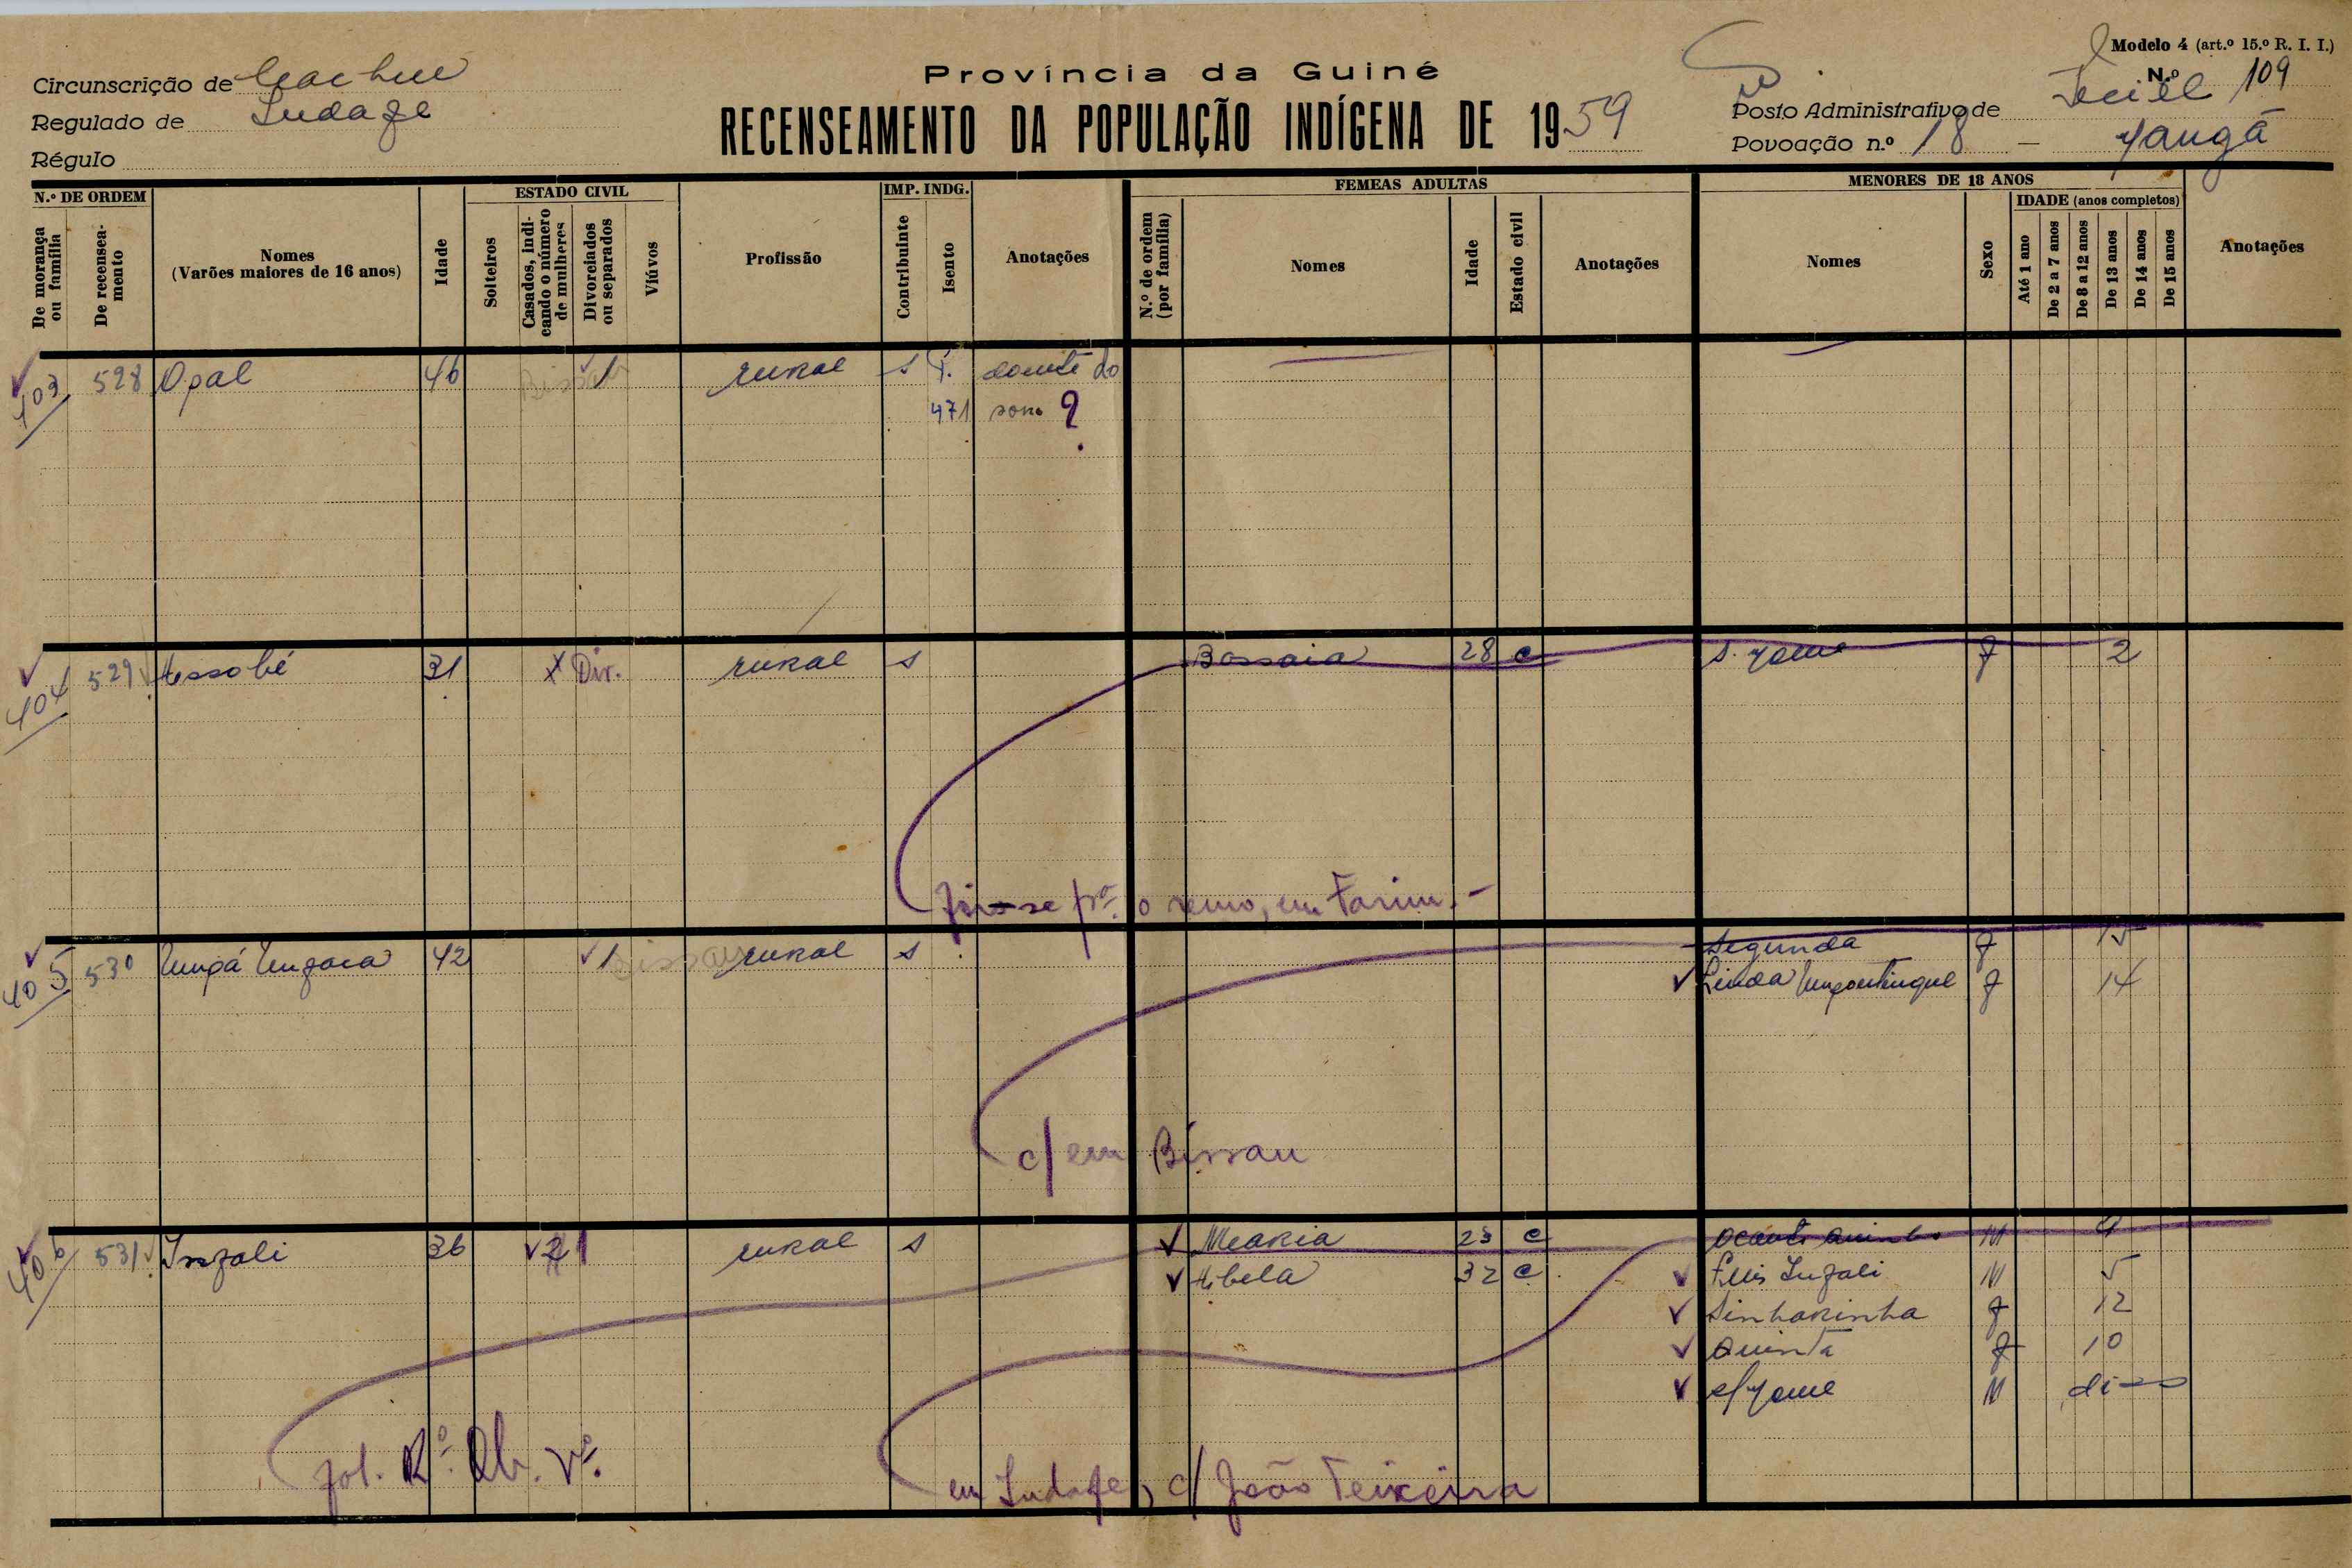 Modelo 4 (art.º 15.º R. I. I.)
Província da Guiné
N.º 109
Circunscrição de Cacheu
Regulado de
Régulo
RECENSEAMENTO DA POPULAÇÃO INDÍGENA DE 1959
Posto Administrativo de
Povoação n.º 18 —
N.º DE ORDEM
De morança ou família
De recenseamento
Nomes
(Varões maiores de 16 anos)
Idade
ESTADO CIVIL
Solteiros
Casados, indicando o número de mulheres
Divorciados ou separados
Viúvos
Profissão
IMP. INDG.
Contribuinte
Isento
Anotações
FEMEAS ADULTAS
N.º de ordem (por família)
Nomes
Idade
Estado civil
Anotações
MENORES DE 18 ANOS
Nomes
Sexo
IDADE (anos completos)
Até 1 ano
De 2 a 7 anos
De 8 a 12 anos
De 13 anos
De 14 anos
De 15 anos
Anotações
403 528 Opal 46 Bissau 1 rural s doente do
471 sono ?
404 529 31 X Div. rural s Bossaia 28 c f 2
foi-se pª o remo, em Farim.-
405 530 42 1 Bissau rural s Segunda f 15
Linda f 14
c/ em Bissau
406 531 Inzali 36 2 1 rural s Maria 23 c M 9
32 c Luis Inzali M 5
Sinharinha f 12
Quinta f 10
M
c/ João Teixeira